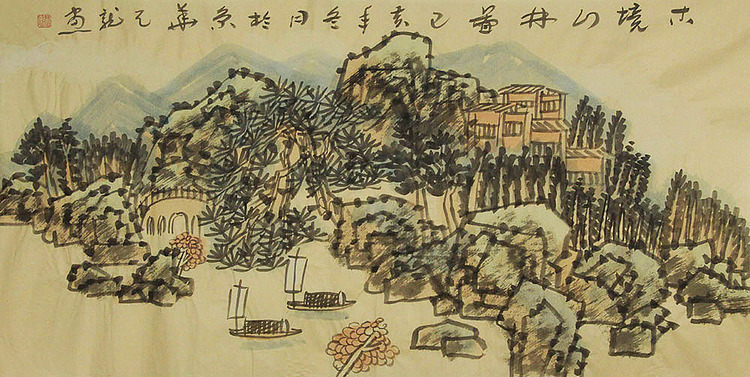 古境山林圖己亥年冬月於京華元龍畫